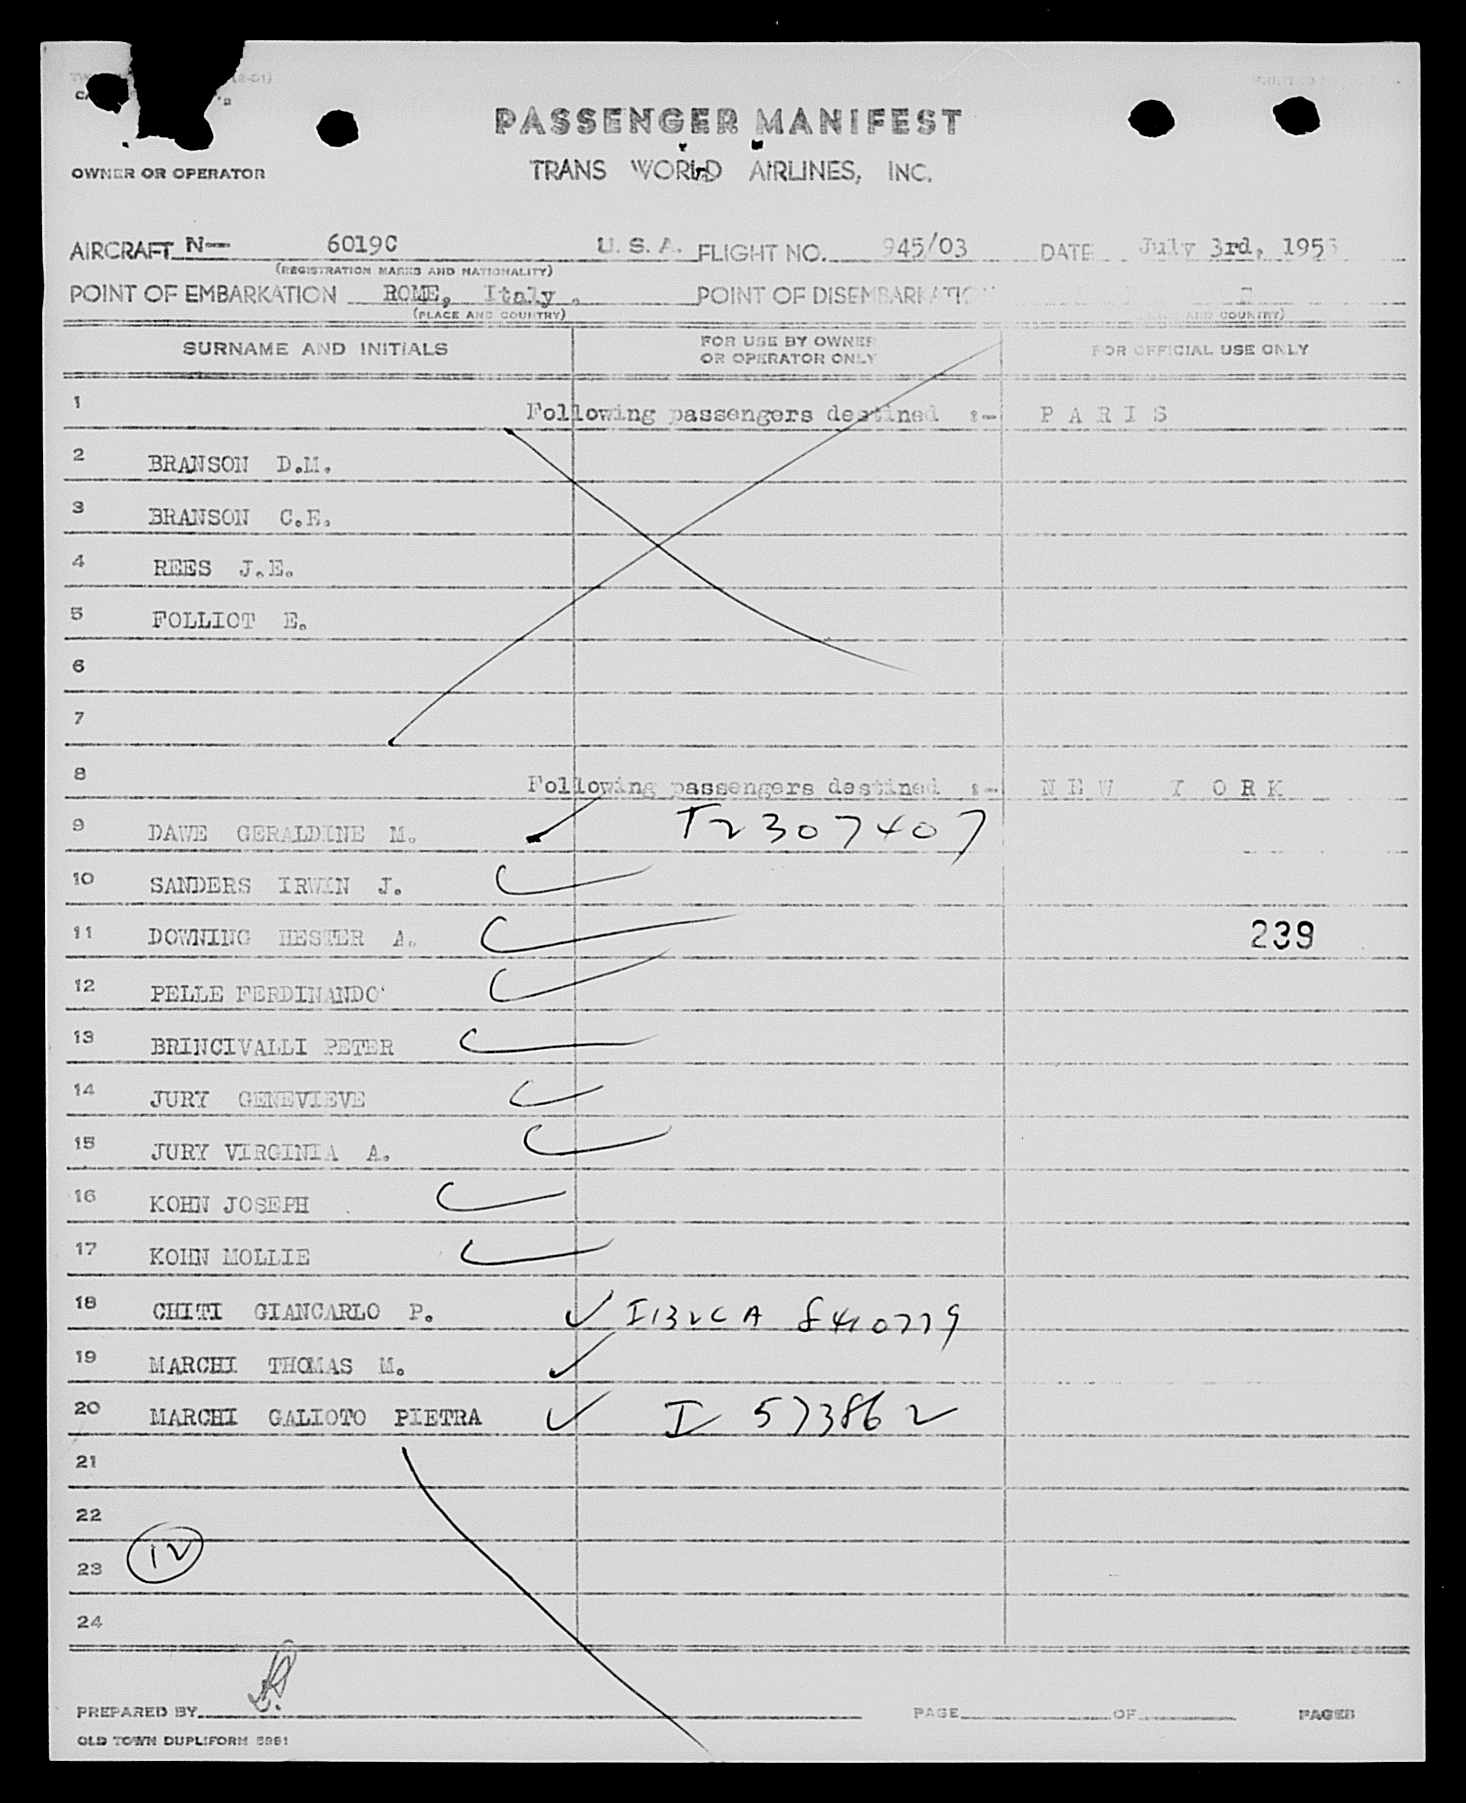 PASSENGER MANIFEST
TRANS WORLD AIRLINES, INC.
OWNER OR OPERATOR
AIRCRAFT N-- 6019C U. S. A. FLIGHT NO. 945/03 DATE July 3rd, 195
(REGISTRATION MARKS AND NATIONALITY)
POINT OF EMBARKATION ROME, Italy. POINT OF DISEMBARKATION
(PLACE AND COUNTRY) AND COUNTRY)
SURNAME AND INITIALS FOR USE BY OWNER OR OPERATOR ONLY FOR OFFICIAL USE ONLY
1 Following passengers destined :- P A R I S
2 BRANSON D.M.
3 BRANSON C.E.
4 REES J.E.
5 FOLLIOT E.
6
7
8 Following passengers destined :- N E W Y O R K
9 DAWE GERALDINE M. T2307407
10 SANDERS IRWIN J.
11 DOWNING HESTER A. 239
12 PELLE FERDINANDO
13 BRINCIVALLI PETER
14 JURY GENEVIEVE
15 JURY VIRGINIA A.
16 KOHN JOSEPH
17 KOHN MOLLIE
18 CHITI GIANCARLO P. ✓ I132CA 8410779
19 MARCHI THOMAS M. ✓
20 MARCHI GALIOTO PIETRA ✓ I 573862
21
22
12
23
24
PREPARED BY PAGE OF PAGES
OLD TOWN DUPLIFORM 5981